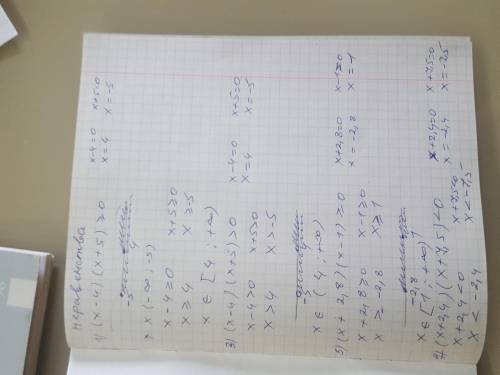 неравенства
1) (x-4)(x+5)≥0
x-4=0 x+5=0
x=4 x=-5
-5 4
x(-∞; -5)
x-4≥0 x+5≥0
x≥4 x≥-5
x∈[4; +∞)
3) (x-4)(x+5)>0
x-4=0 x+5=0
x=4 x=-5
x-4>0 x+5>0
x>4 x>-5
-5 4
x∈(4; +∞)
5) (x+2,8)(x-1)≥0
x+2,8=0 x-1=0
x=-2,8 x=-1
x+2,8≥0 x-1≥0
x≥-2,8 x≥1
-2,8 1
x∈[1; +∞)
7) (x+2,4)(x+7,5)<0
x+2,4=0 x+7,5=0
x=-2,4 x=-7,5
x+2,4<0 x+7,5<0
x<-2,4 x<-7,5